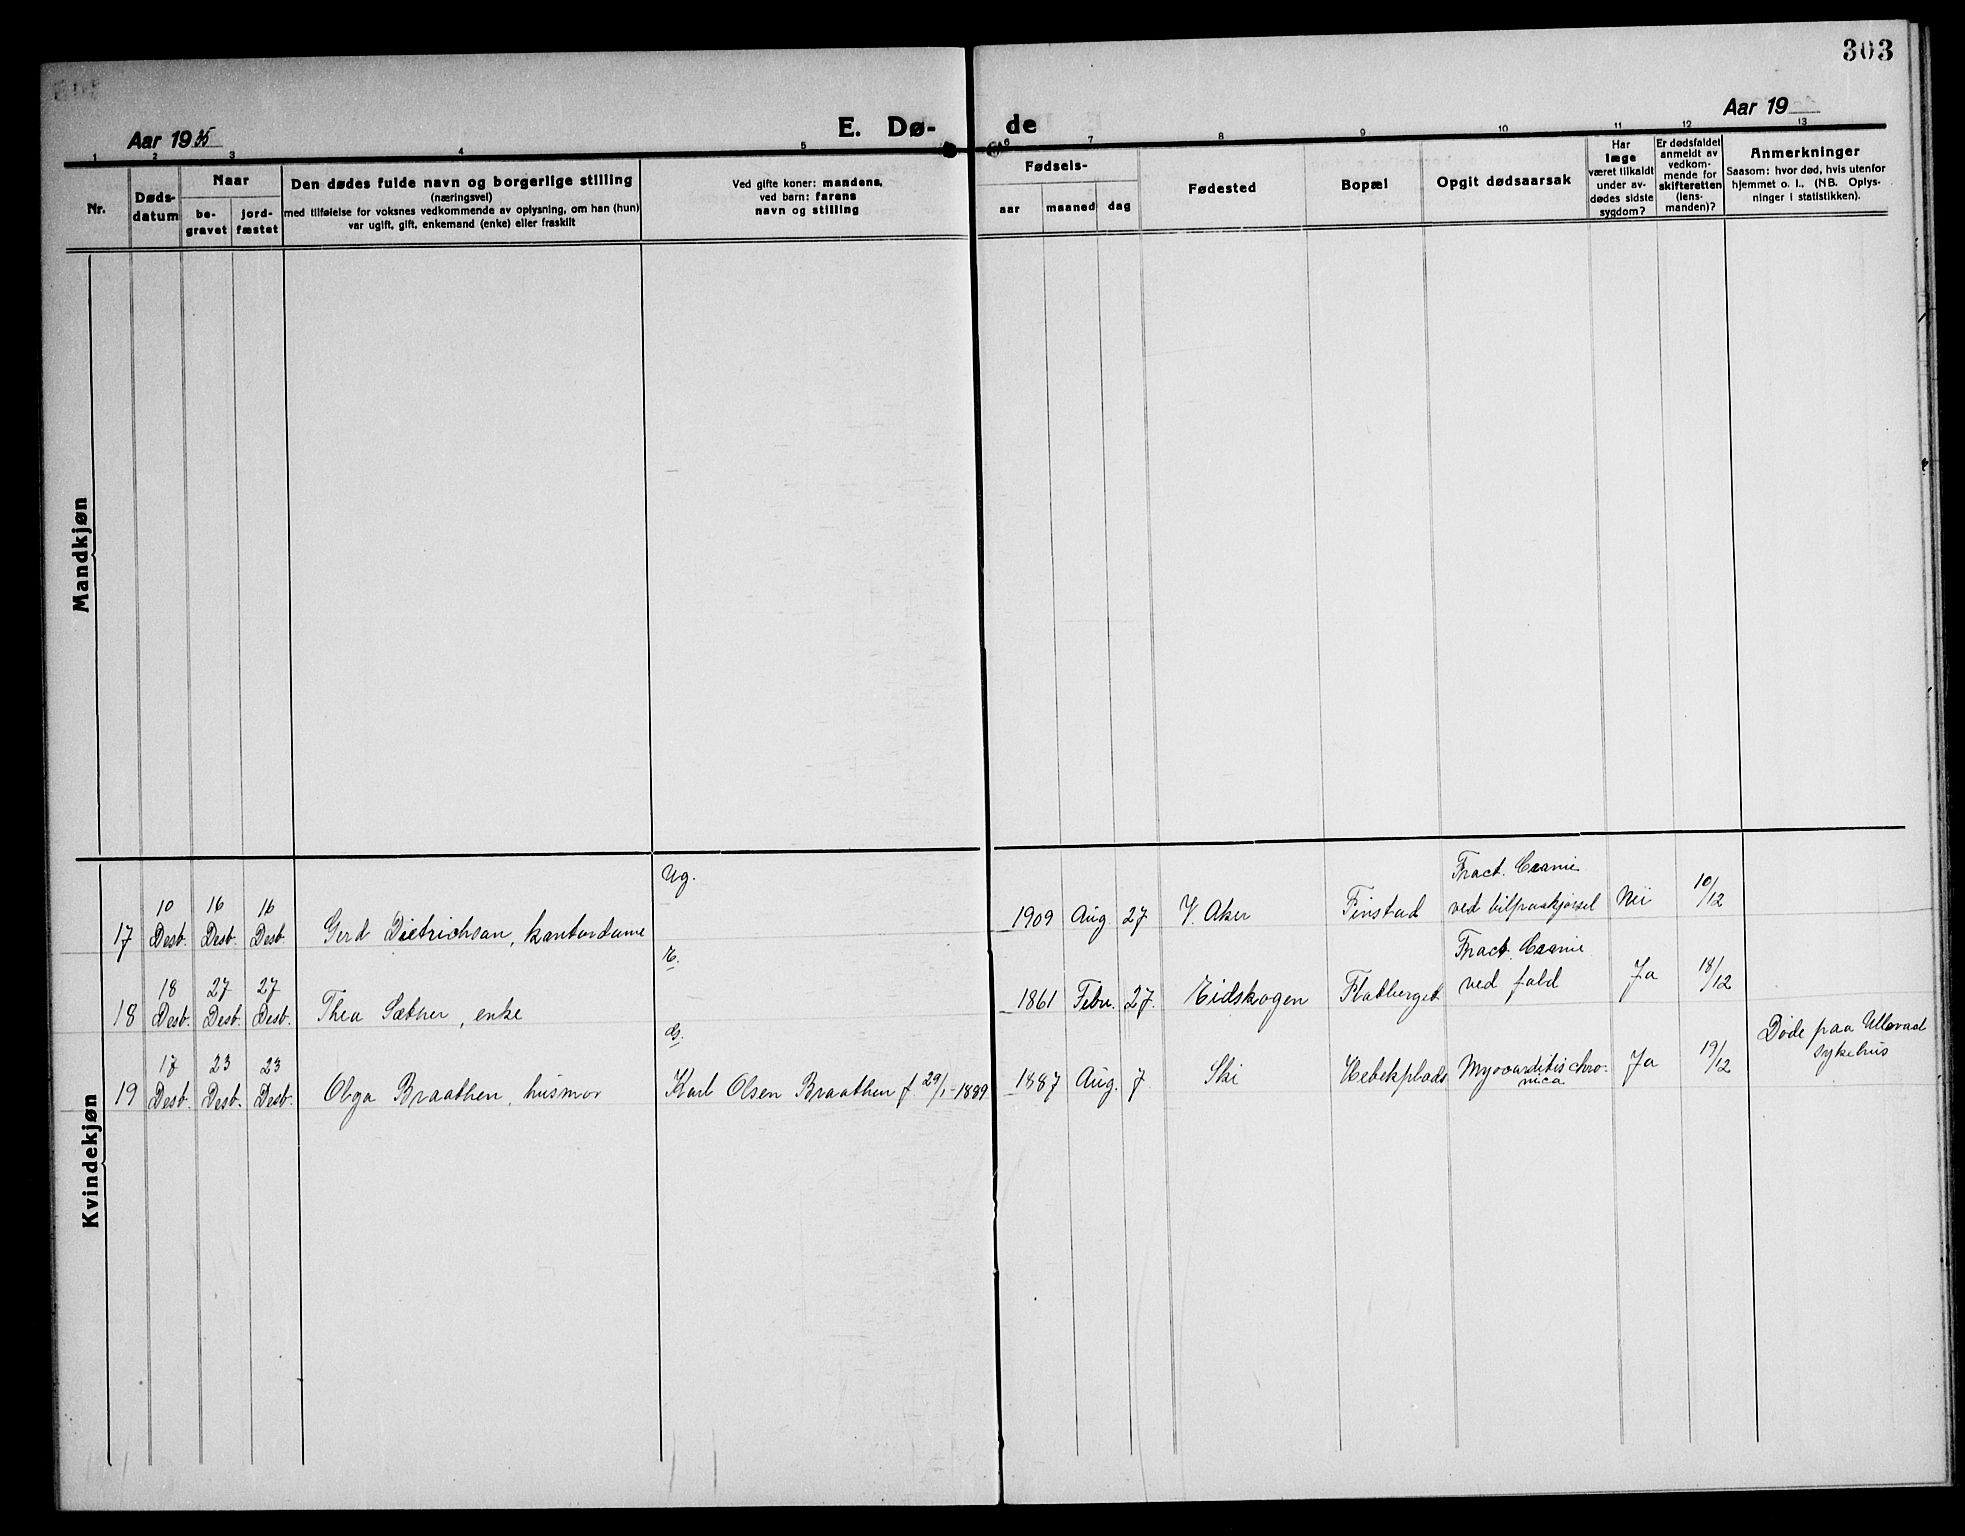 303
Aar 1935
E. Dø-
de
Aar 19
1 2 3 4 5 6 7 8 9 10 11 12 13
Nr.
Døds-
datum
Naar
be-
gravet
jord-
fæstet
Den dødes fulde navn og borgerlige stilling
(næringsvei)
med tilføielse for voksnes vedkommende av oplysning, om han (hun)
var ugift, gift, enkemand (enke) eller fraskilt
Ved gifte koner: mandens,
ved barn: farens
navn og stilling
Fødsels-
aar
maaned
dag
Fødested
Bopæl
Opgit dødsaarsak
Har
læge
været tilkaldt
under av-
dødes sidste
sygdom?
Er dødsfaldet
anmeldt av
vedkom-
mende for
skifteretten
(lens-
manden)?
Anmerkninger
Saasom: hvor død, hvis utenfor
hjemmet o. l., (NB. Oplys-
ninger i statistikken).
Mandkjøn
Kvindekjøn
Ug.
10 16 16 Fract. Cranie 10/12
17 Desb. Desb. Desb. Gerd Dietrichson, kontordame 1909 Aug 27 V. Aker Finstad ved bilpaakjørsel Nei
E.
18 27 27 Fract. Cranie 18/12
18 Desb. Desb. Desb. Thea Sæther, enke 1861 Febr. 27. Eidskogen Flatberget ved fald Ja
G.
17 23 23 19/12 Døde paa Ullevaal
sykehus
19 Desb. Desb. Desb. Olga Braathen, husmor Karl Olsen Braathen f. 29/1-1889 1887 Aug. 7. Ski Hebekplads Myocarditis chro-
nica Ja